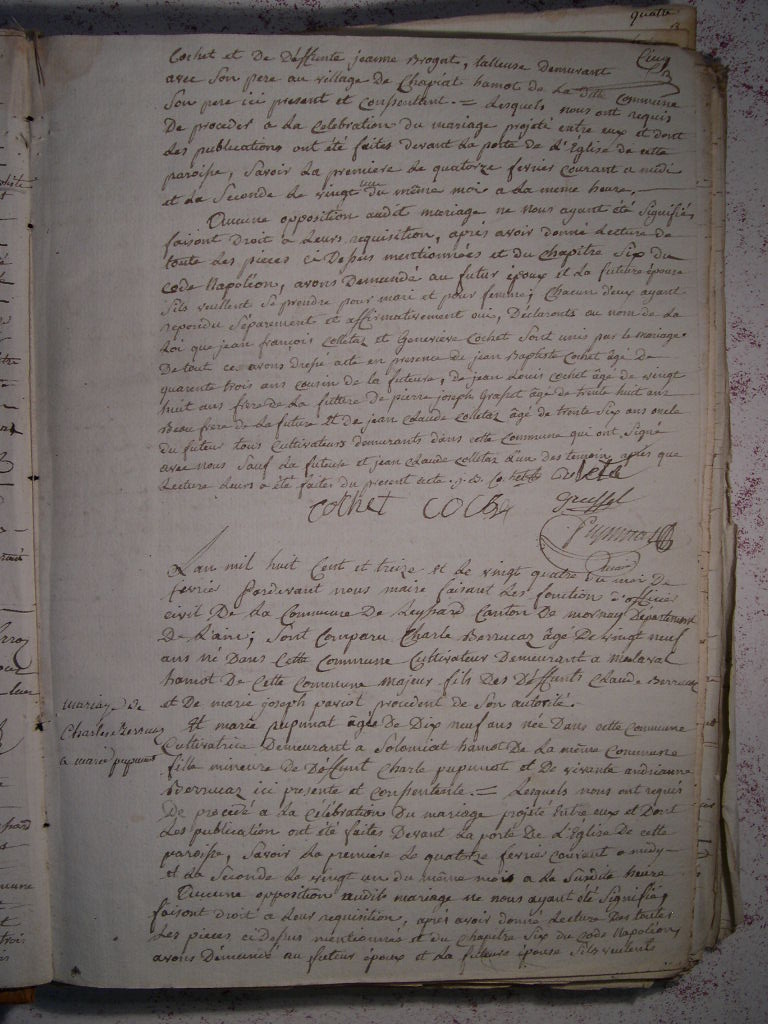 quatre
Cinq
Cochet et De Déffunte jeanne Brognt, talleuse demeurant
avec Son pere au village De Chapiat hamot de La ditte Commune
Son pere ici present et Consentent. = Lesquels nous ont requis
De proceder a La Celebration du mariage projeté entre eux et dont
Les publications ont été faites devant La porte de L'Eglise de cette
paroisse, Savoir La premiere Le quatorze fevrier Courant a midi
et La Seconde Le vingt un du même moi a La meme heure,
Aucune opposition audit mariage ne nous ayant été Signifiés
faisont Droit a Leurs requisition, après avoir donné Lecture de
toute Les pieces Ci Dessus mentionnées et du Chapitre Six du
Code Napoléon, avons Demandé au futur époux et La futture épouse
Sils veullent Se prendre pour mari et pour femme; Chacun d'eux ayant
repondu Séparement et affirmativement oui, Déclaronts au nom de La
Loi que jean françois Colletaz et Genevieve Cochet Sont unis par Le mariage.
De tout ce, avons dressé acte en presence de jean Baptiste Cochet âgé De
quarente trois ans Cousin de la futeure, de jean Louis Cochet âgé de vingt
huit ans frere de La future De pierre joseph Grasset âgé de trente huit ans
Beau frere de La future et de jean Claude Colletaz âgé de trente Six ans oncle
du futeur tous Cultivateurs demeurants dans cette Commune qui ont Signé
avec nous Sauf La futeure et jean Claude Colletaz L'un des temoin après que
Lecture Leurs a été faites du present acte. j. B. Cochet
Cochet COChet
Grasset
L'an mil huit Cent et treize et Le vingt quatre du moi De
fevrier Pardevant nous maire faisant Les fonction d'officier
Civil De La Commune De Leyssard Canton De mornay Département
De L'ain; Sont Comparu Charle Berrucaz âgé De vingt neuf
ans né Dans Cette Commune Cultivateur Demeurant a Malaval
hamot De Cette Commune majeur fils Des Déffunts Claude Berrucaz
et De marie joseph procedent de Son autorité.
mariage de
Charles Berrucaz
a marie pupunat
Et marie pupunat agée De Dix neuf ans née Dans cette Commune
Cultivatrice Demeurant a Solomiat hamot De La même Commune
fille mineure De Déffunt Charle pupunat et De vivante andrianne
Berrucaz ici presente et Consentente. = Lesquels nous ont requis
De procedé a La Celébration Du mariage projété Entre eux et Dont
Les publication ont été faites Devant La porte De L'Eglise De cette
paroisse, Savoir La premiere Le quatorze fevrier Courant a midy
et La Seconde Le vingt un du même mois a La Susdite heure
Aucune opposition audite mariage ne nous ayant été Signifié,
faisont Droit a Leur requisition, après avoir donné Lecture Des toutes
Les pieces ci Dessus mentionnées et du Chapitre Six du Code Napoléon,
avons Demandé au futeur époux et La futeure épouse Sils veulents